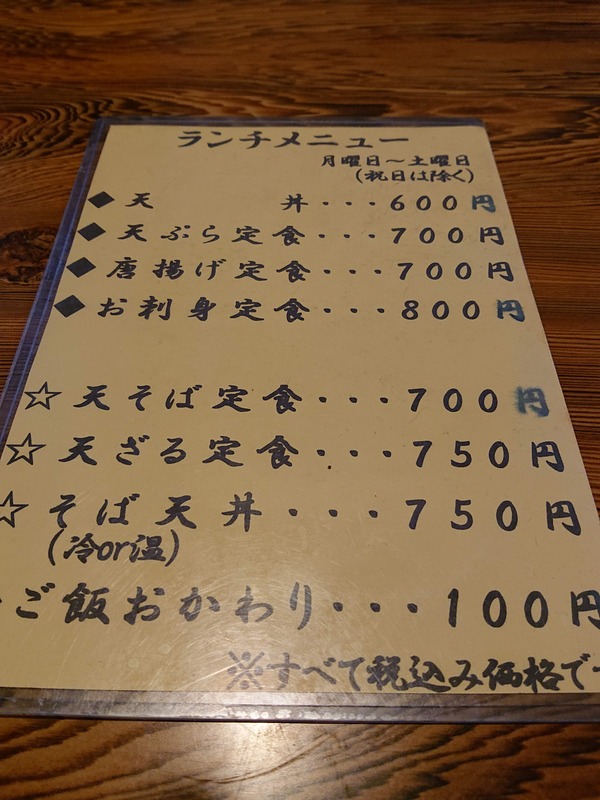 ランチメニュー
月曜日～土曜日
(祝日は除く)
◆天丼・・・600円
◆天ぷら定食・・・700円
◆唐揚げ定食・・・700円
◆お刺身定食・・・800円
☆天そば定食・・・700円
☆天ざる定食・・・750円
☆そば天丼・・・750円
(冷or温)
ご飯おかわり・・・100円
※すべて税込み価格で